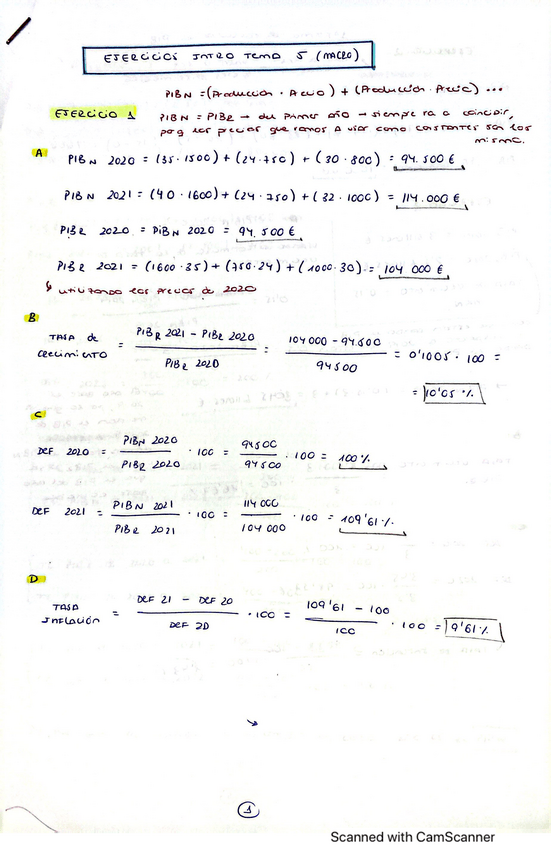 EJERCICIOS INTRO TEMA 5 (MACRO)
PIB N = (Producción · Precio) + (Producción · Precio) ...
EJERCICIO 1
PIB N = PIB R → del primer año → siempre va a coincidir,
pq los precios que vamos a usar como constantes son los
mismos.
A
PIB N 2020 = (35 · 1500) + (24 · 750) + (30 · 800) = 94.500 €
PIB N 2021 = (40 · 1600) + (24 · 750) + (32 · 1000) = 114.000 €
PIB R 2020 = PIB N 2020 = 94.500 €
PIB R 2021 = (1600 · 35) + (750 · 24) + (1000 · 30) = 104 000 €
↳ utilizando los precios de 2020
B
TASA de CRECIMIENTO = PIB R 2021 - PIB R 2020 / PIB R 2020 = 104 000 - 94.500 / 94500 = 0'1005 · 100 =
= 10'05 %
C
DEF 2020 = PIB N 2020 / PIB R 2020 · 100 = 94500 / 94500 · 100 = 100 %
DEF 2021 = PIB N 2021 / PIB R 2021 · 100 = 114 000 / 104 000 · 100 = 109'61 %
D
TASA INFLACIÓN = DEF 21 - DEF 20 / DEF 20 · 100 = 109'61 - 100 / 100 · 100 = 9'61 %
1
Scanned with CamScanner